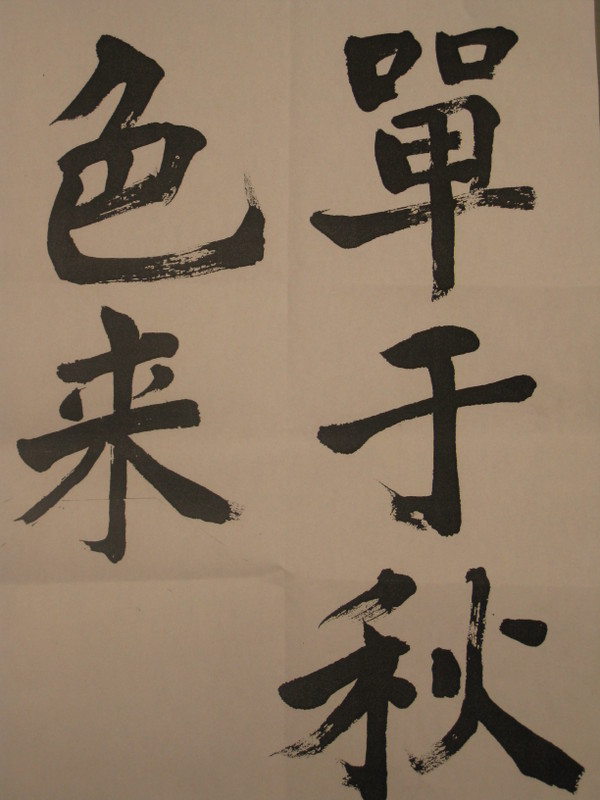 單于秋
色来